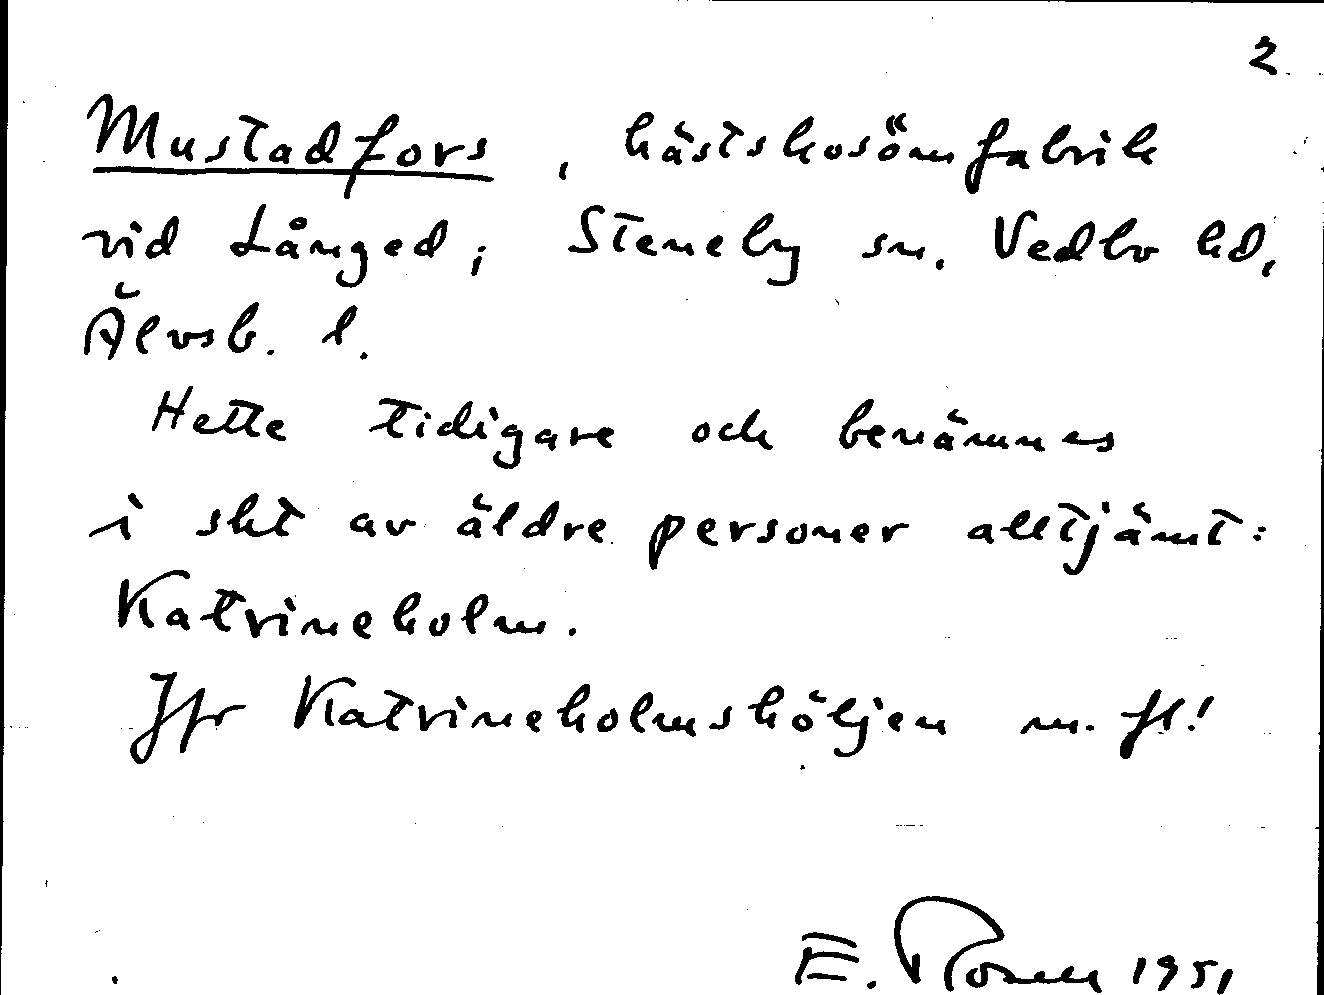 2
Mustadfors, hästskosömfabrik
vid Långed; Steneby sn. Vedbo hd,
Älvsb. l.
Hette tidigare och benämnes
i sht av äldre personer alltjämt:
Katrineholm.
Jfr Katrineholmshöljen m. fl.!
E. 1951